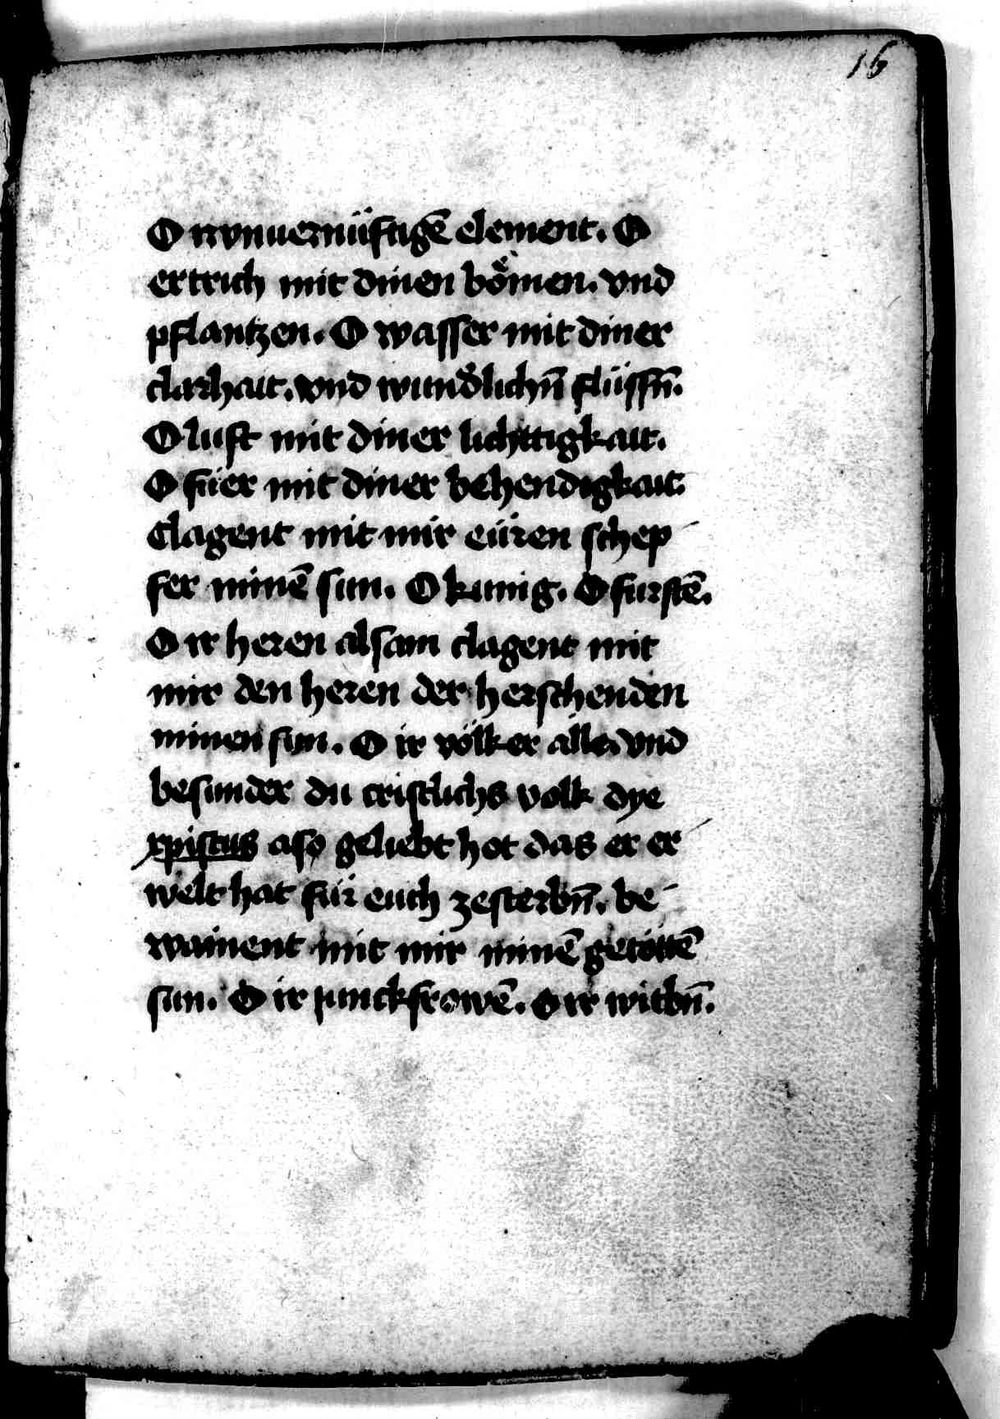 16
O ir vnuernüftigē element. O
ertrich mit dinen bömen. vnd
pflantzen. O wasser mit diner
clarhait. vnd wundʼlichn̄ flüssn̄.
O luft mit diner lichttigkait.
O füer mit diner behendigkait.
Clagent mit mir eüren schep
fer minē sun. O kunig. O furstē.
O ir heren alsam clagent mit
mir den heren der herschenden
minen sun. O ir völker alle. vnd
besunder du cristlichs volk dye
xpistus aso geliebt hot das er er
welt hat für euch zesterbn̄. be
wainent mit mir minē getöttē
sun. O ir junckfrowē. O ir witbn̄.